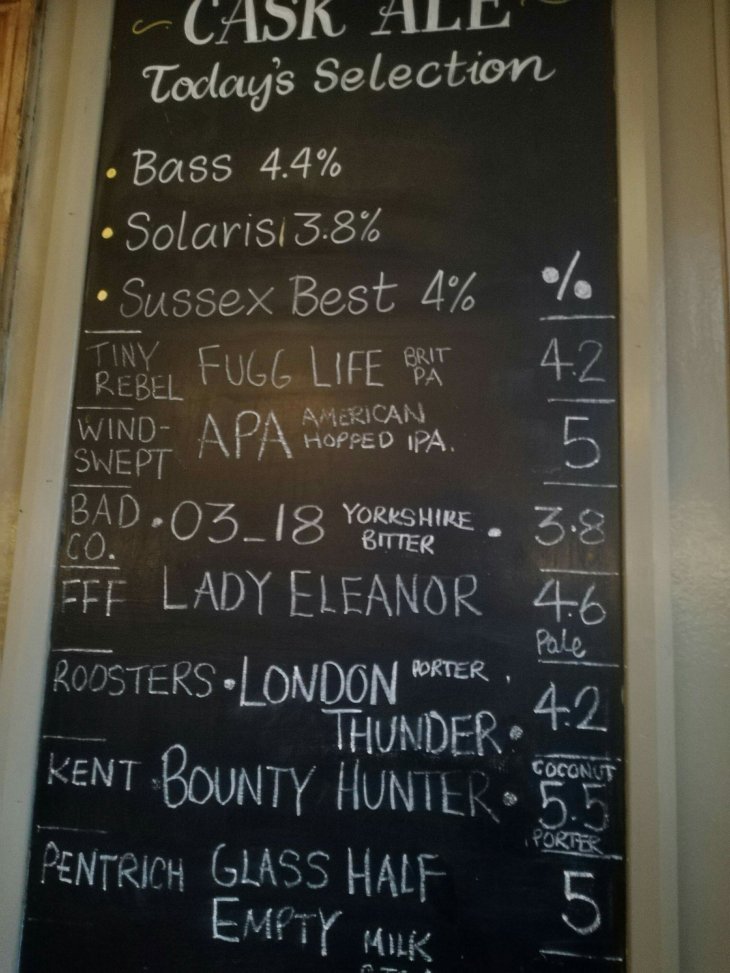 CASK ALE
Today's Selection
• Bass 4.4%
• Solaris 3.8%
• Sussex Best 4%
%
TINY REBEL FUGG LIFE BRIT PA 4.2
WIND-SWEPT APA AMERICAN HOPPED IPA. 5
BAD CO. • 03_18 YORKSHIRE BITTER • 3.8
FFF LADY ELEANOR 4.6 Pale
ROOSTERS • LONDON THUNDER • PORTER 4.2
KENT • BOUNTY HUNTER • COCONUT 5.5 PORTER
PENTRICH GLASS HALF EMPTY MILK 5